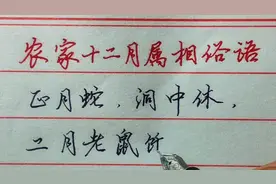 农家十二月属相俗语
正月蛇，洞中休，
二月老鼠